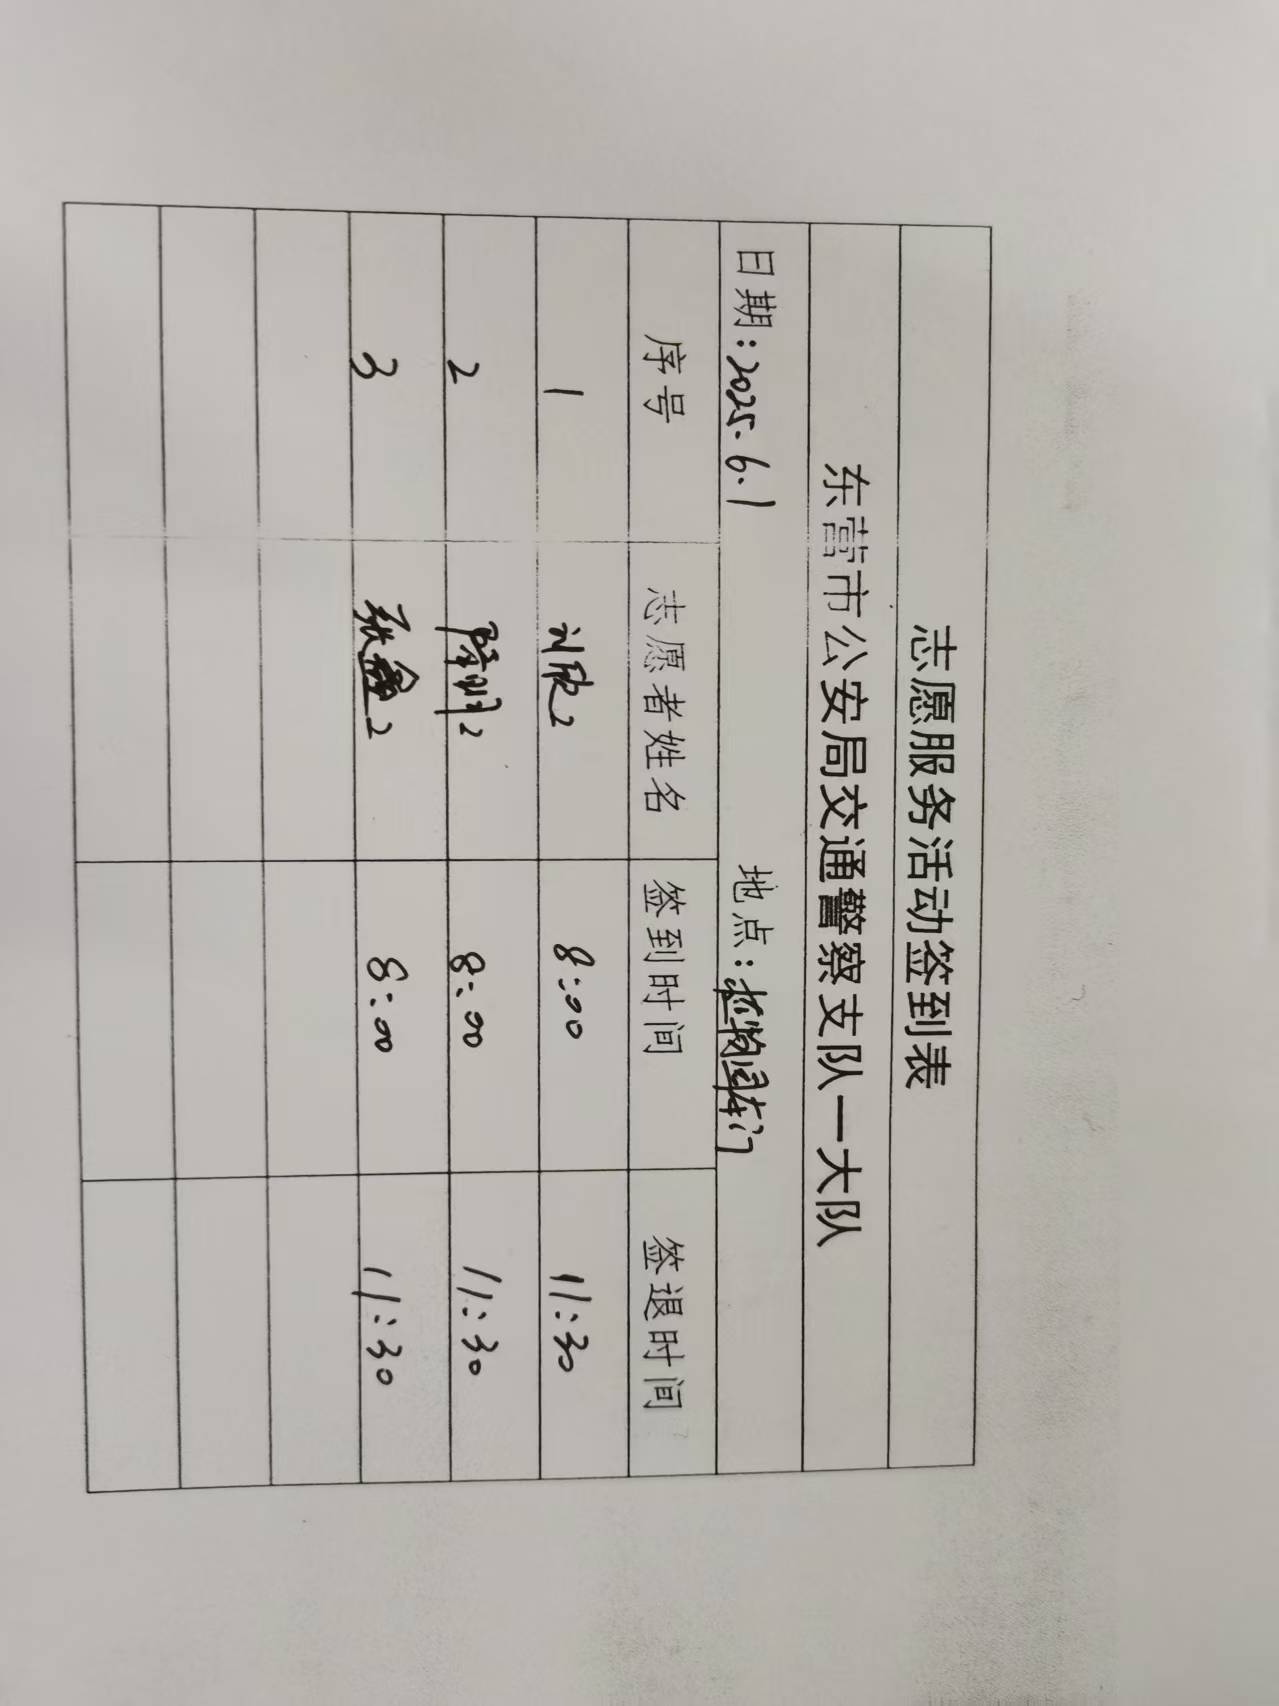 志愿服务活动签到表
东营市公安局交通警察支队一大队
日期:2025.6.1 地点:植物园东门
序号 志愿者姓名 签到时间 签退时间
1 刘欣2 8:00 11:30
2 2 8:00 11:30
3 张鑫2 8:00 11:30